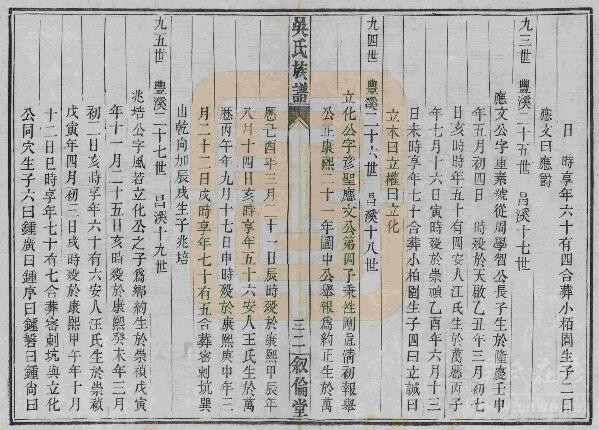 日　時享年六十有四合葬小栢園生子二曰
應文曰應爵
九三世　豐溪二十五世　昌溪十七世
應文公字重素號從周學智公長子生於隆慶壬申
年五月初四日　時殁於天啟乙丑年三月初七
日亥時時年五十有四安人江氏生於萬歷丙子
年七月十六日寅時殁於崇禎乙酉年六月十三
日未時享年七十合葬小栢園生子四曰立誠曰
立本曰立權曰立化
九四世　豐溪二十六世　昌溪十八世
立化公字彦聖應文公第四子秉性剛直清初報舉
公正康熙二十一年圖中公舉報為約正生於萬
吳氏族譜
三二
叙倫堂
歷己酉年三月二十一日辰時殁於康熙甲辰年
八月十四日亥時享年五十六安人王氏生於萬
歷丙午年九月十七日申時殁於康熙庚申年三
月二十二日戌時享年七十有五合葬密刺坑巽
山乾向加辰戌生子兆培
九五世　豐溪二十七世　昌溪十九世
兆培公字風若立化公之子為鄉約生於崇禎戊寅
年十一月二十五日亥時殁於康熙癸未年三月
初二日亥時享年六十有六安人汪氏生於崇禎
戊寅年四月初三日戌時殁於康熙甲午年十月
十二日巳時享年七十有七合葬密刺坑與立化
公同穴生子六曰鍾廣曰鍾序曰鍾磐曰鍾尚曰